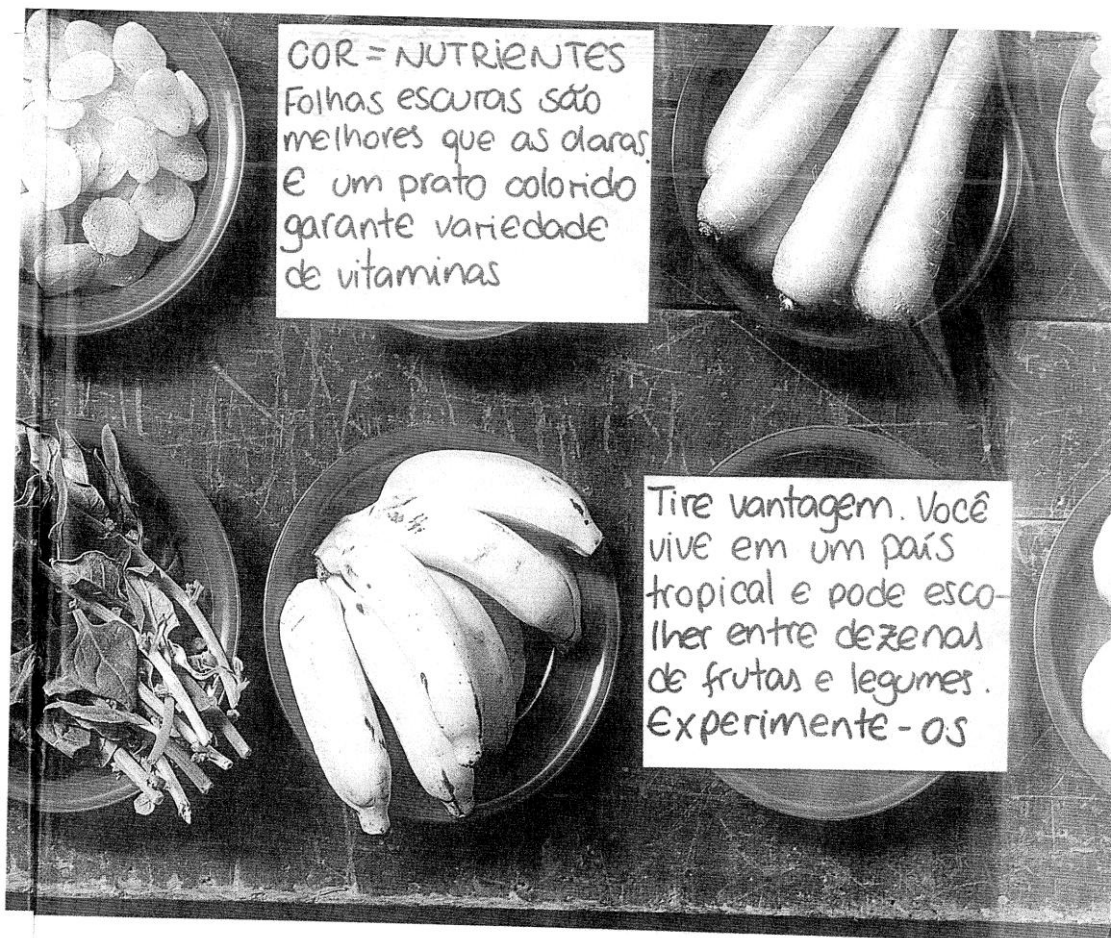 COR = NUTRIENTES
Folhas escuras são
melhores que as claras.
E um prato colorido
garante variedade
de vitaminas
Tire vantagem. Você
vive em um país
tropical e pode esco-
lher entre dezenas
de frutas e legumes.
Experimente-os